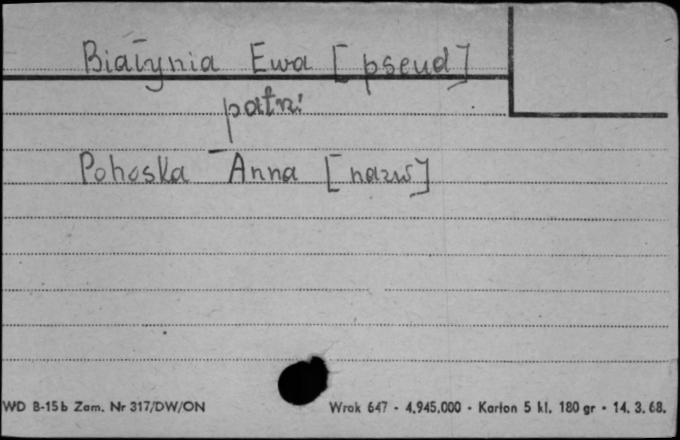 Białynia Ewa [pseud]
patrz:
Pohoska Anna [nazw]
WD B-15b Zam. Nr 317/DW/ON Wrok 647 - 4.945.000 - Karton 5 kl. 180 gr - 14. 3. 68.